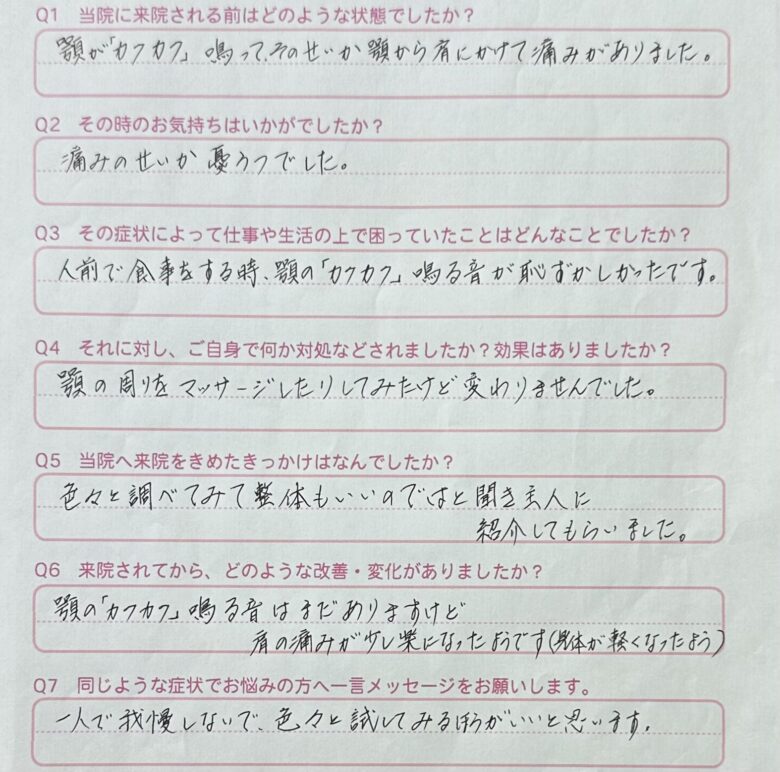 Q1 当院に来院される前はどのような状態でしたか？
顎が「カクカク」鳴って、そのせいか顎から肩にかけて痛みがありました。
Q2 その時のお気持ちはいかがでしたか？
痛みのせいか憂うつでした。
Q3 その症状によって仕事や生活の上で困っていたことはどんなことでしたか？
人前で食事をする時、顎の「カクカク」鳴る音が恥ずかしかったです。
Q4 それに対し、ご自身で何か対処などされましたか？効果はありましたか？
顎の周りをマッサージしたりしてみたけど変わりませんでした。
Q5 当院へ来院をきめたきっかけはなんでしたか？
色々と調べてみて整体もいいのではと聞き主人に
紹介してもらいました。
Q6 来院されてから、どのような改善・変化がありましたか？
顎の「カクカク」鳴る音はまだありますけど
肩の痛みが少し楽になったようです（身体が軽くなったよう）
Q7 同じような症状でお悩みの方へ一言メッセージをお願いします。
一人で我慢しないで、色々と試してみるほうがいいと思います。